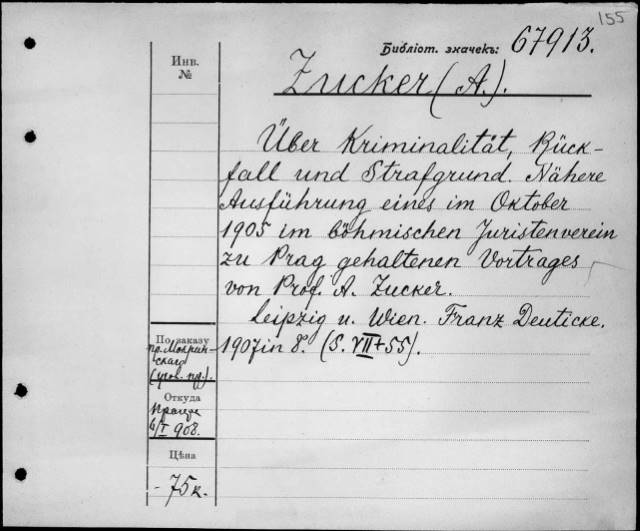 155
Библіот. значекъ: 67913.
Инв.
№
Zucker (A.).
Über Kriminalität, Rück-
fall und Strafgrund. Nähere
Ausführung eines im Oktober
1905 im böhmischen Juristenverein
zu Prag gehaltenen Vortrages
von Prof. A. Zucker.
Leipzig u. Wien. Franz Deuticke.
1907 in 8º. (S. VII+55).
По заказу
пр. Мокрин-
скаго
(угов. пр.).
Откуда
6/I 908.
Цѣна
- 75 к.